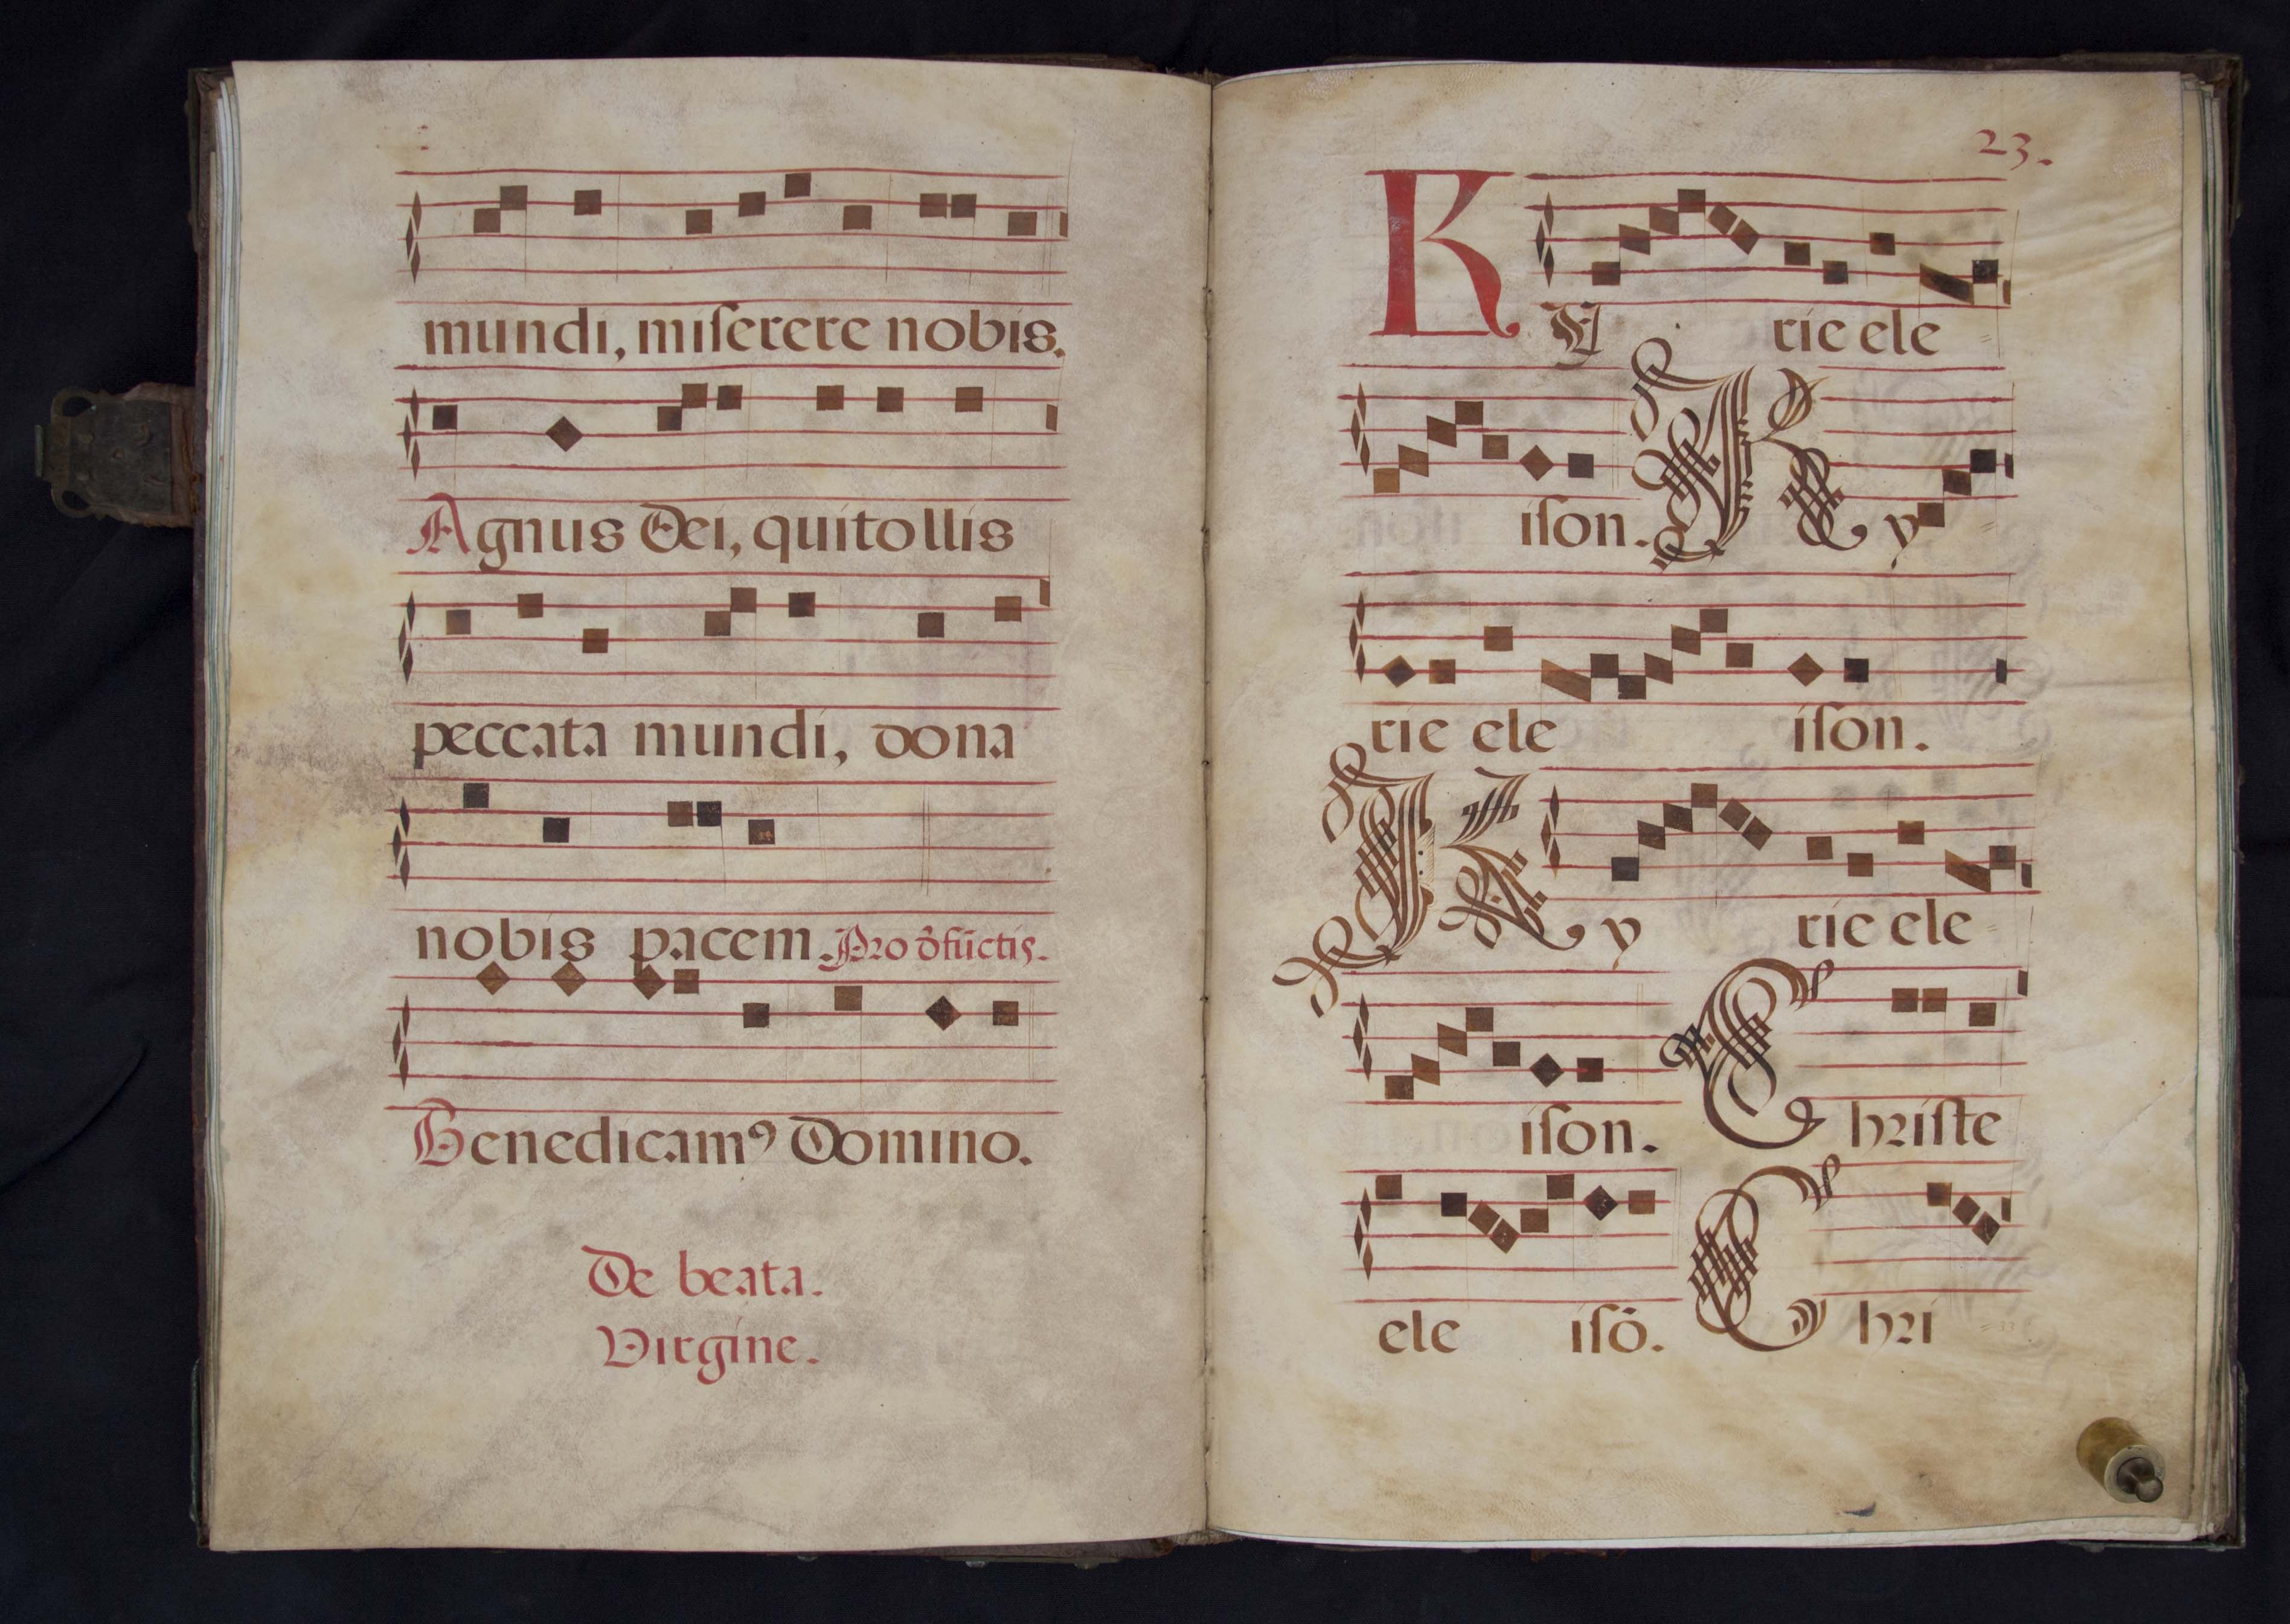 mundi, miſerere nobis.
Agnus Dei, qui tollis
peccata mundi, dona
nobis pacem. Pro d̃fūctis.
Benedicamꝰ Domino.
De beata.
Virgine.
23.
KY rie ele
iſon. Ky
rie ele iſon.
Ky rie ele
iſon. Chriſte
ele iſō. Chri